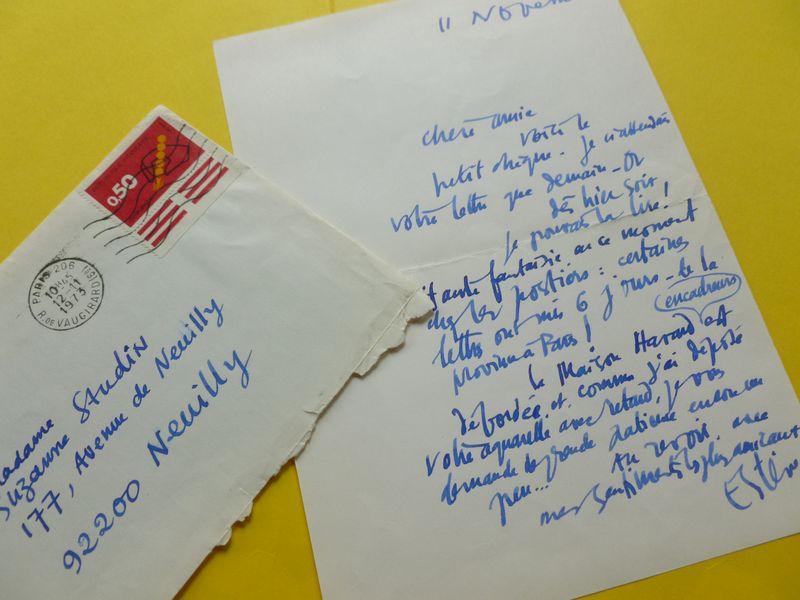 11 Novem
chère amie
voici le
petit chèque. Je n'attendais
votre lettre que demain - Or
dès hier soir
je pouvais la lire!
haute fantaisie en ce moment
chez les postiers : certaines
lettres ont mis 6 jours - de la
province à Paris!
encadreurs
la Maison Havard est
débordée et comme j'ai déposé
votre aquarelle avec retard, je vous
demande de grande patience encore un
peu... Au revoir avec
mes sentiments les plus amicaux
Estève
0,50
PARIS 206
10H45
12-11
1973
R. DE VAUGIRARD (6e)
Madame
Suzanne Studin
177, Avenue de Neuilly
92200 Neuilly